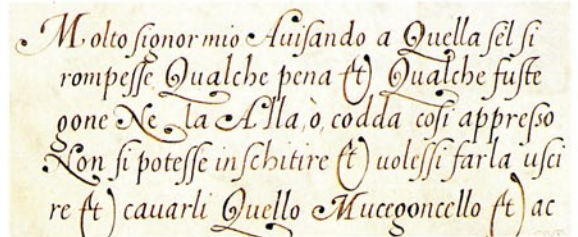 Molto signor mio Auisando a Quella sel si
rompesse Qualche pena et Qualche fuste
gone Ne la Alla, ò, codda cosi appresso
Non si potesse inschitire et uolessi farla usci
re et cauarli Quello Mucegoncello et ac